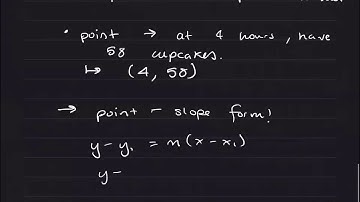 • point → at 4 hours, have
58 cupcakes.
↳ (4, 58)
→ point - slope form!
y - y₁ = m(x - x₁)
y -